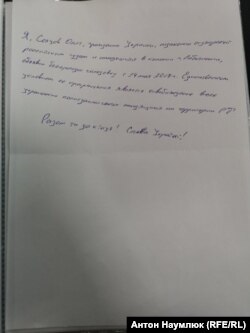 Я, Сенцов Олег, гражданин Украины, незаконно осужденный
российским судом и находящийся в колонии г. Лабытнанги,
объявил бессрочную голодовку с 14 мая 2018 г. Единственным
условием ее прекращения является освобождение всех
украинских политзаключенных находящихся на территории РФ
Разом та до кінця! Слава Україні!
Антон Наумлюк (RFE/RL)